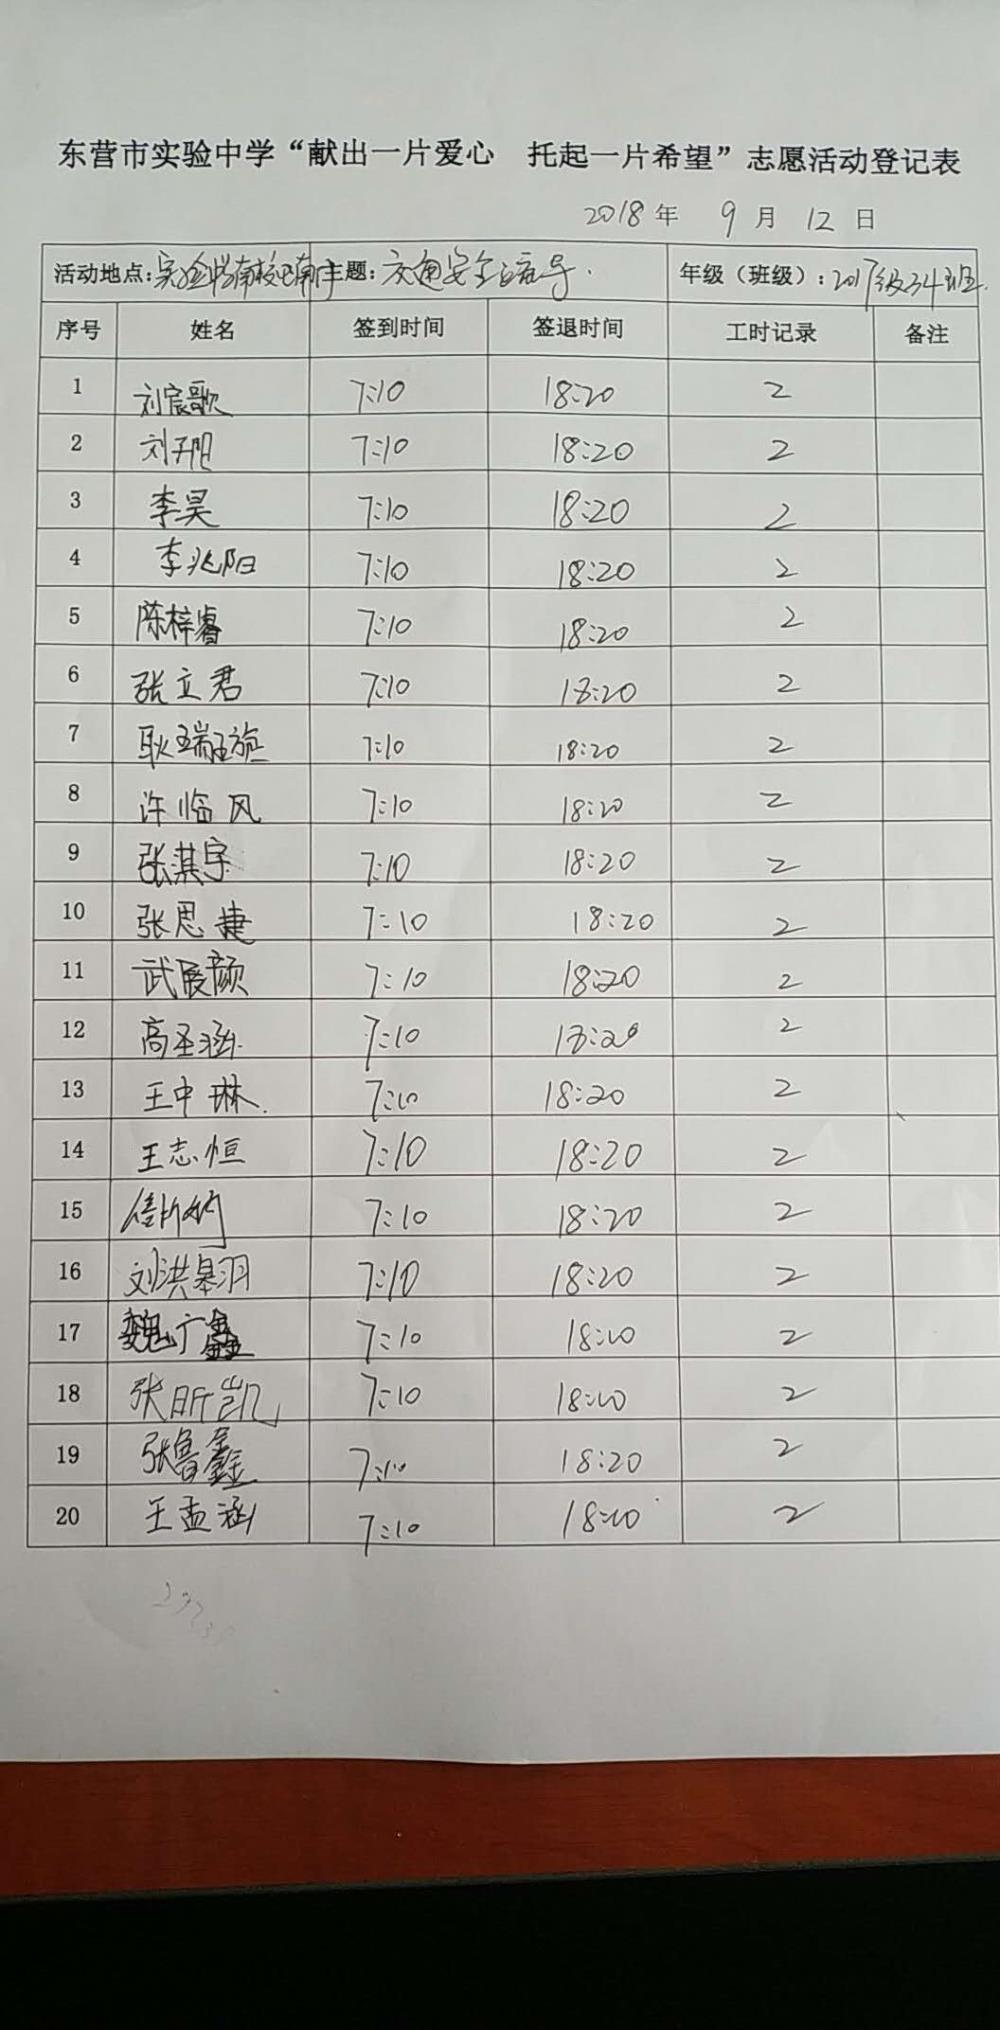 东营市实验中学“献出一片爱心 托起一片希望”志愿活动登记表
2018年 9月 12日
活动地点:实验中学南校区南门 主题:交通安全疏导. 年级（班级）:2017级34班.
序号 姓名 签到时间 签退时间 工时记录 备注
1 刘宸歌 7:10 18:20 2
2 刘开阳 7:10 18:20 2
3 李昊 7:10 18:20 2
4 李兆阳 7:10 18:20 2
5 陈梓睿 7:10 18:20 2
6 张立君 7:10 18:20 2
7 耿瑞璇 7:10 18:20 2
8 许临风 7:10 18:20 2
9 张淇宇 7:10 18:20 2
10 张思捷 7:10 18:20 2
11 武展颜 7:10 18:20 2
12 高圣涵 7:10 18:20 2
13 王中琳 7:10 18:20 2
14 王志恒 7:10 18:20 2
15 7:10 18:20 2
16 刘洪皋羽 7:10 18:20 2
17 魏广鑫 7:10 18:20 2
18 张昕凯 7:10 18:20 2
19 张鲁鑫 7:10 18:20 2
20 王孟涵 7:10 18:20 2